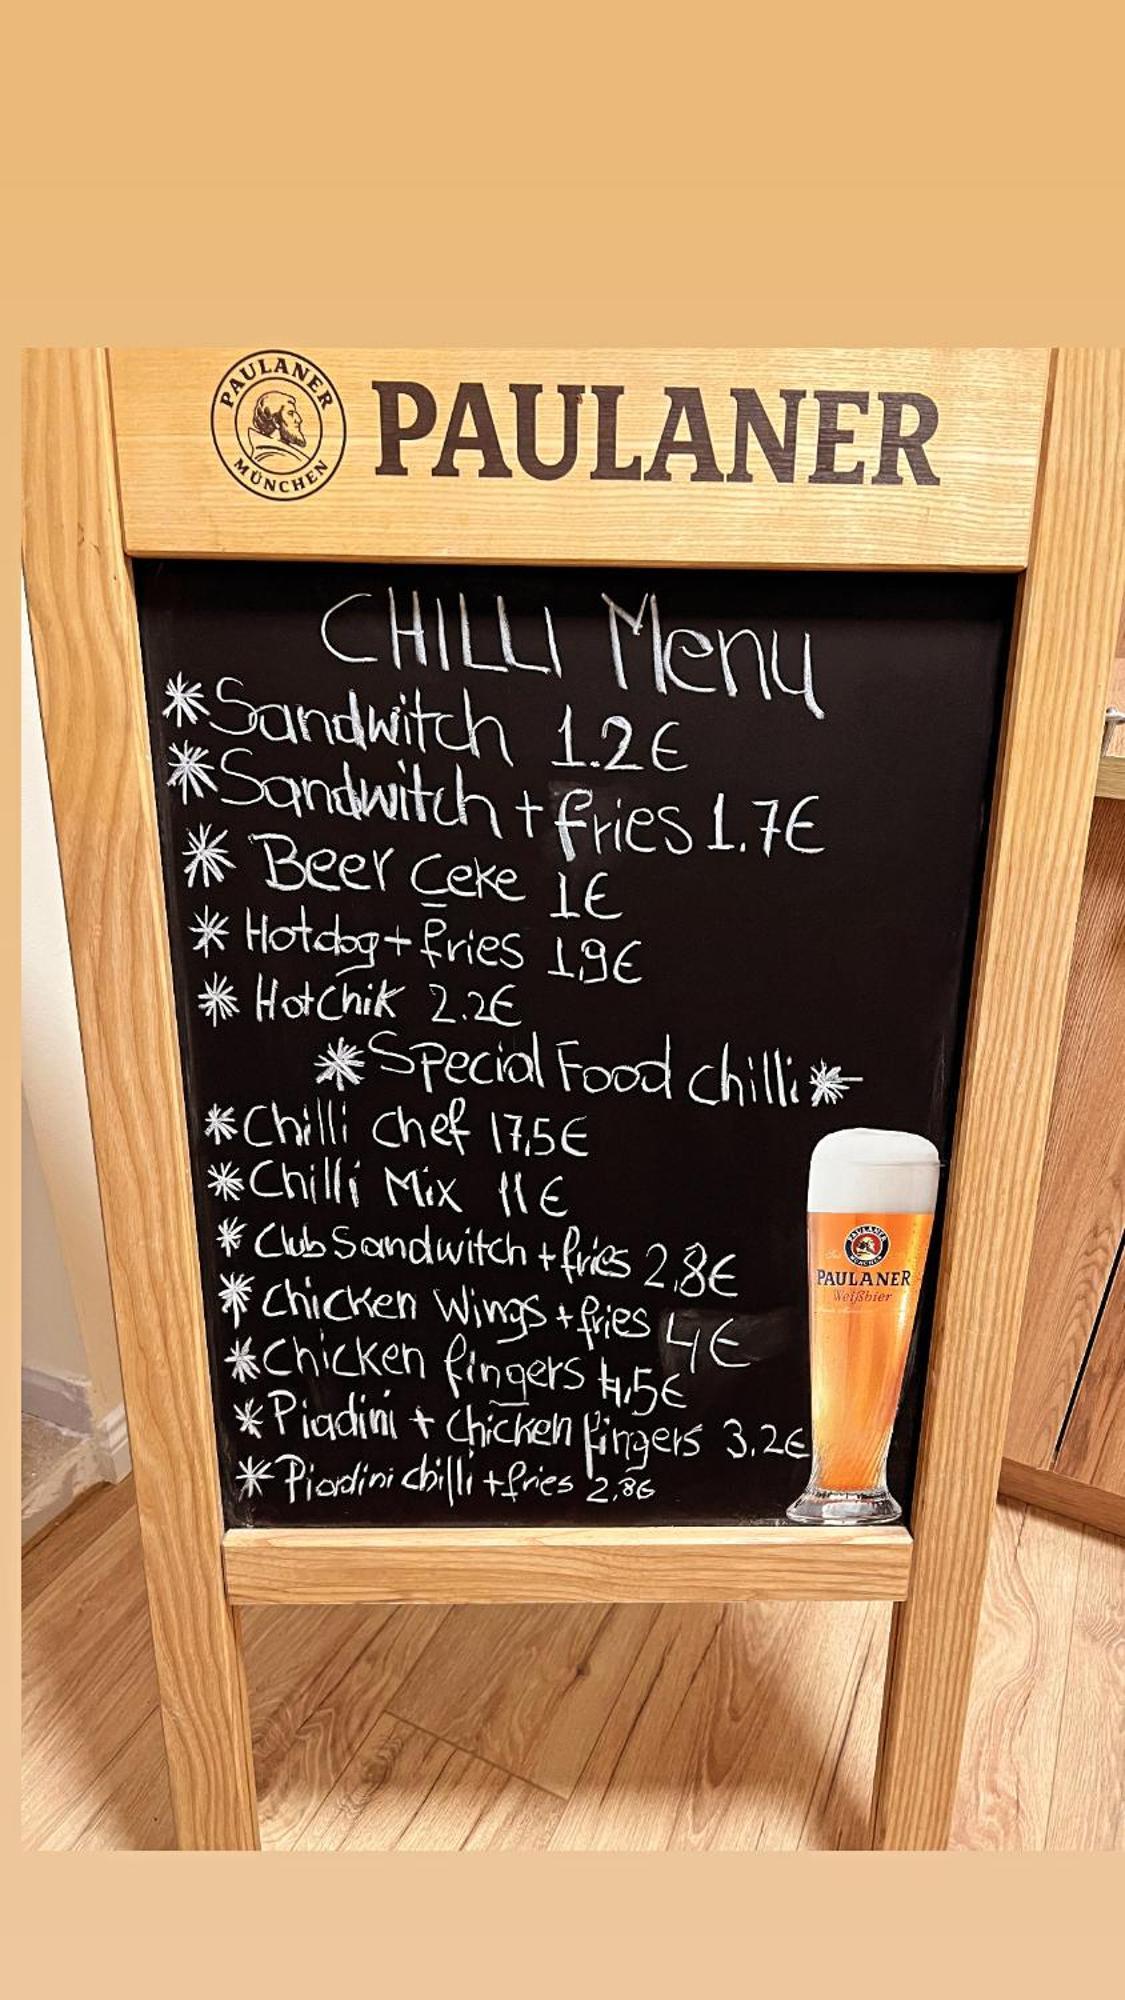 PAULANER
MÜNCHEN
PAULANER
CHILLI Menu
*Sandwitch 1.2€
*Sandwitch + fries 1.7€
* Beer Çeke 1€
* Hotdog + fries 1,9€
* HotChik 2.2€
*Special Food chilli*
*Chilli chef 17,5€
*Chilli Mix 11€
* Club Sandwitch + fries 2,8€
* Chicken Wings + fries 4€
*Chicken fingers 4,5€
*Piadini + chicken fingers 3.2€
* Piardini chilli + fries 2,8€
PAULANER
MÜNCHEN
PAULANER
Weißbier